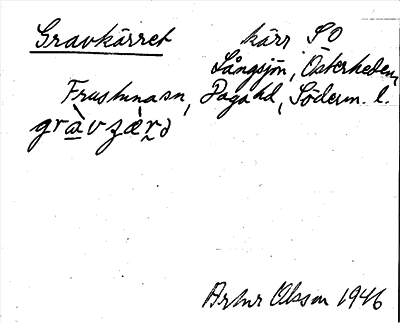 Gravkärret kärr SO
Långsjön, Österheden,
Frustuna sn, Daga hd, Söderm. l.
gràvzæ̀rə
Artur Olsson 1946